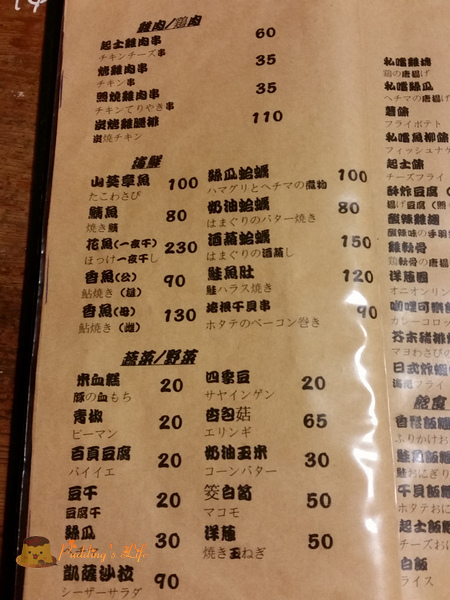 雞肉/鶏肉
起士雞肉串 60
チキンチーズ串
烤雞肉串 35
チキン串
照燒雞肉串 35
チキンてりやき串
炭烤雞腿排 110
炭焼チキン
海鮮
山葵章魚 100
たこわさび
鯖魚 80
焼き鯖
花魚(一夜干) 230
ほっけ一夜干し
香魚(公) 90
鮎焼き(雄)
香魚(母) 130
鮎焼き(雌)
絲瓜蛤蠣 100
ハマグリとヘチマの煮物
奶油蛤蠣 80
はまぐりのバター焼き
酒蒸蛤蠣 150
はまぐりの酒蒸し
鮭魚肚 120
鮭ハラス焼き
培根干貝串 90
ホタテのベーコン巻き
蔬菜/野菜
米血糕 20
豚の血もち
青椒 20
ピーマン
百頁豆腐 20
バイイエ
豆干 20
豆腐干
絲瓜 30
凱薩沙拉 90
シーザーサラダ
四季豆 20
サヤインゲン
杏包菇 65
エリンギ
奶油玉米 30
コーンバター
筊白筍 50
マコモ
洋蔥 50
焼き玉ねぎ
私嚐雞塊
鶏の唐揚げ
私嚐絲瓜
ヘチマの唐揚げ
薯條
フライポテト
私嚐魚柳條
フィッシュナゲ
起士條
チーズフライ
酥炸豆腐
揚げ豆腐
酸辣雞翅
酸辣味の手羽
雞軟骨
鶏軟骨の唐揚
洋蔥圈
オニオンリン
咖哩可樂餅
カレーコロッ
芥末豬排
マヨわさびの
日式炸蝦
海老フライ
飯糰
香鬆飯糰
ふりかけお
鮭魚飯糰
鮭おにぎり
干貝飯糰
ホタテおに
起士飯糰
チーズおに
白飯
ライス
Pudding's Life